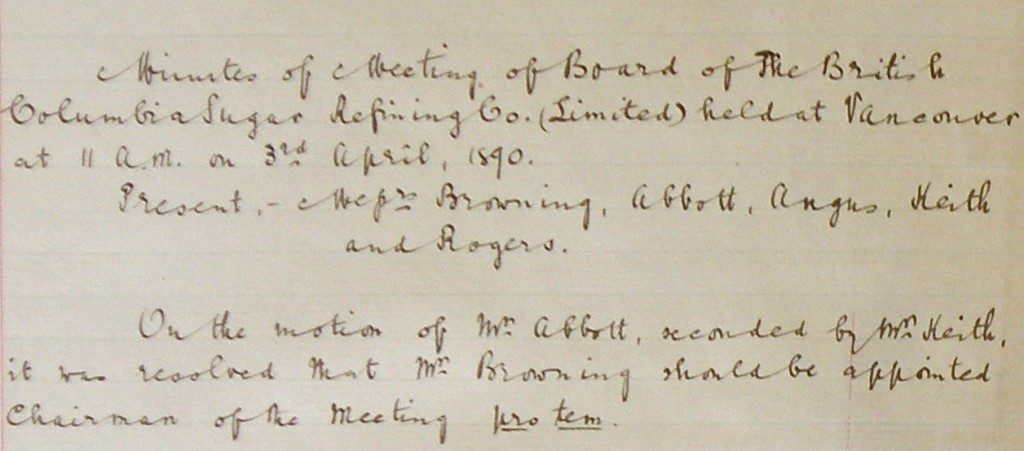 Minutes of Meeting of Board of The British
Columbia Sugar Refining Co. (Limited) held at Vancouver
at 11 A.M. on 3rd April, 1890.
Present, - Messrs Browning, Abbott, Angus, Keith
and Rogers.
On the motion of Mr. Abbott, seconded by Mr. Keith,
it was resolved that Mr. Browning should be appointed
Chairman of the Meeting pro tem.